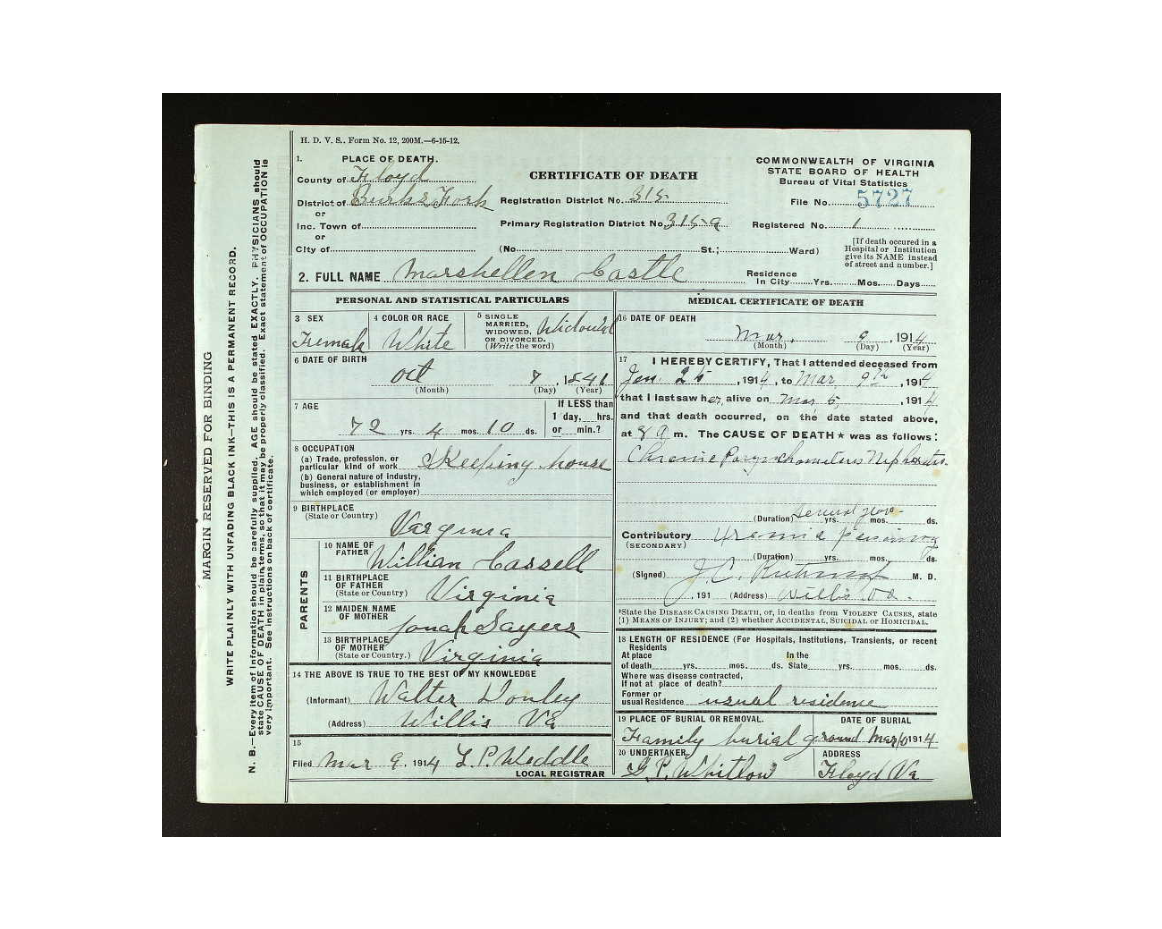 H. D. V. S., Form No. 12, 200M.—6-15-12.
1. PLACE OF DEATH.
County of Floyd
District of Burks Fork
or
Inc. Town of
or
City of
CERTIFICATE OF DEATH
Registration District No. 315
Primary Registration District No. 315 a
(No. St.; Ward)
COMMONWEALTH OF VIRGINIA
STATE BOARD OF HEALTH
Bureau of Vital Statistics
File No. 5727
Registered No. 1
[If death occured in a
Hospital or Institution
give its NAME instead
of street and number.]
2. FULL NAME Marshellen Castle
Residence
In City Yrs. Mos. Days
PERSONAL AND STATISTICAL PARTICULARS
3 SEX
Female
4 COLOR OR RACE
White
5 SINGLE
MARRIED,
WIDOWED,
OR DIVORCED.
(Write the word)
Widowed
6 DATE OF BIRTH
Oct 7, 1841
(Month) (Day) (Year)
7 AGE
72 yrs. 4 mos. 10 ds.
If LESS than
1 day, hrs.
or min.?
8 OCCUPATION
(a) Trade, profession, or
particular kind of work Keeping house
(b) General nature of industry,
business, or establishment in
which employed (or employer)
9 BIRTHPLACE
(State or Country) Varginia
PARENTS
10 NAME OF
FATHER William Cassell
11 BIRTHPLACE
OF FATHER
(State or Country) Virginia
12 MAIDEN NAME
OF MOTHER Sayers
13 BIRTHPLACE
OF MOTHER
(State or Country.) Virginia
14 THE ABOVE IS TRUE TO THE BEST OF MY KNOWLEDGE
(Informant) Walter
(Address) Willis Va
15
Filed Mar 9. 1914 L. P. Weddle
LOCAL REGISTRAR
MEDICAL CERTIFICATE OF DEATH
16 DATE OF DEATH
Mar. 9, 1914
(Month) (Day) (Year)
17 I HEREBY CERTIFY, That I attended deceased from
Jan. 25, 1914, to Mar. 9th, 1914
that I last saw her alive on Mar, 5, 1914
and that death occurred, on the date stated above,
at 8 a m. The CAUSE OF DEATH * was as follows:
Chronic
(Duration) yrs. mos. ds.
Contributory
(SECONDARY)
(Duration) yrs. mos. ds.
(Signed) J. C. M. D.
, 191 (Address) Willis Va.
*State the DISEASE CAUSING DEATH, or, in deaths from VIOLENT CAUSES, state
(1) MEANS OF INJURY; and (2) whether ACCIDENTAL, SUICIDAL or HOMICIDAL.
18 LENGTH OF RESIDENCE (For Hospitals, Institutions, Transients, or recent
Residents
At place In the
of death yrs. mos. ds. State yrs. mos. ds.
Where was disease contracted,
if not at place of death?
Former or
usual Residence usual residence
19 PLACE OF BURIAL OR REMOVAL. DATE OF BURIAL
Family burial ground Mar 10 1914
20 UNDERTAKER, ADDRESS
G. P. Whitlow Floyd Va
MARGIN RESERVED FOR BINDING
WRITE PLAINLY WITH UNFADING BLACK INK—THIS IS A PERMANENT RECORD.
N. B.—Every item of information should be carefully supplied. AGE should be stated EXACTLY. PHYSICIANS should
state CAUSE OF DEATH in plain terms, so that it may be properly classified. Exact statement of OCCUPATION is
very important. See instructions on back of certificate.